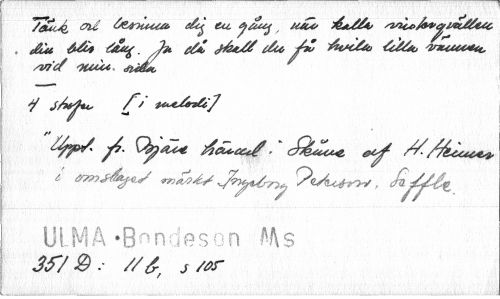 Tänk och besinna dig en gång, när kalla vinterqvällen
din blir lång. Ja då skall du få hvila lilla vännen
vid min sida
4 strofer [i melodi]
"Uppt. fr. Bjäre härad i Skåne af H. Heimer
i omslaget märkt "Ingeborg Peterson, Säffle.
ULMA • Bondeson Ms
351 D: 11 b, s 105